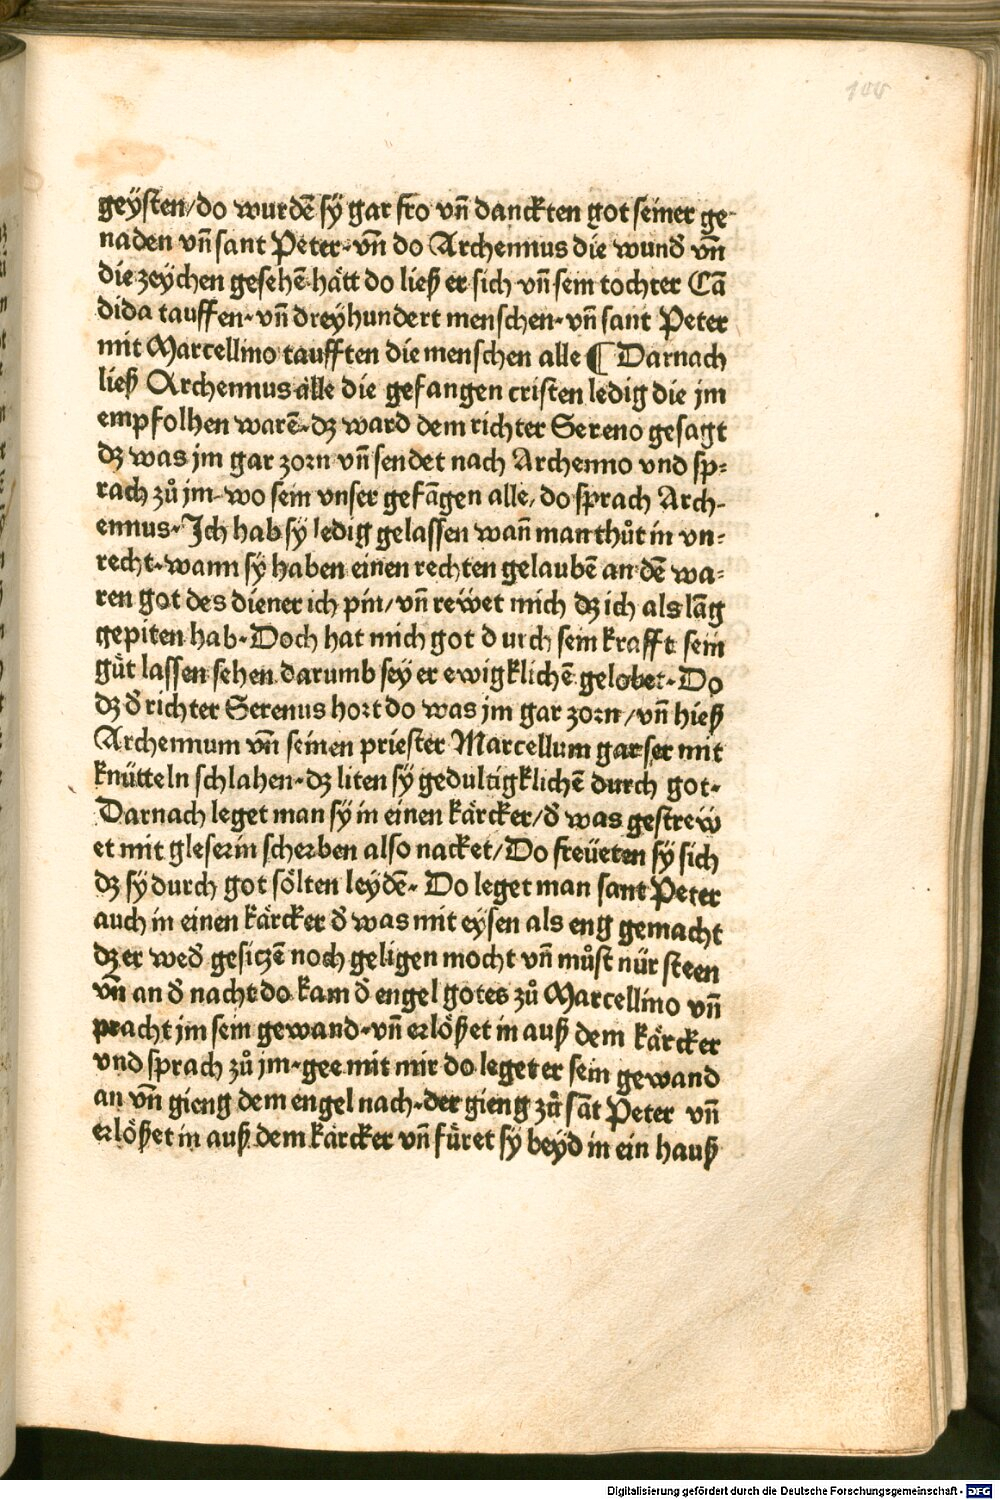 100
geÿſten/do wurdē ſÿ gar fro vn̄ danckten got ſeiner ge-
naden vn̄ ſant Peter·vn̄ do Archennus die wund̕ vn̄
die zeÿchen geſehē hått do ließ er ſich vn̄ ſein tochter Cā
dida tauffen·vn̄ dreÿhundert menſchen·vn̄ ſant Peter
mit Marcellino taufften die menſchen alle ¶ Darnach
ließ Archennus alle die gefangen criſten ledig die jm
empfolhen warē·dz ward dem richter Sereno geſagt
dz was jm gar zoꝛn vn̄ ſendet nach Archenno vnd ſp⸗
rach zů jm·wo ſein vnſer gefāgen alle/do ſprach Arch-
ennus·Ich hab ſy ledig gelaſſen wan̄ man thůt in vn⸗
recht·wann ſÿ haben einen rechten gelaubē an dē wa⸗
ren got des diener ich pin/vn̄ rewet mich dz ich als lāg
gepiten hab·Doch hat mich got durch ſein krafft ſein
gůt laſſen ſehen darumb ſey er ewigklichē gelobet·Do
dz d̕ richter Serenus hoꝛt do was jm gar zoꝛn/vn̄ hieß
Archennum vn̄ ſeinen prieſter Marcellum gar ſer mit
knütteln ſchlahen·dz liten ſÿ gedultigklichē durch got·
Darnach leget man ſÿ in einen kårcker/d̕ was geſtrew
et mit gleſerin ſcherben alſo nacket/Do freüeten ſÿ ſich
dz ſÿ durch got ſölten leÿdē·Do leget man ſant Peter
auch in einen kårcker d̕ was mit eyſen als eng gemacht
dz er wed̕ geſiczē noch geligen mocht vn̄ můſt nür ſteen
vn̄ an d̕ nacht do kam d̕ engel gotes zů Marcellino vn̄
pracht jm ſein gewand·vn̄ erlößet in auß dem kårcker
vnd ſprach zů jm·gee mit mir do leget er ſein gewand
an vn̄ gieng dem engel nach·der gieng zů ſāt Peter vn̄
erlößet in auß dem kårcker vn̄ füret ſÿ beÿd in ein hauß
Digitalisierung gefördert durch die Deutsche Forschungsgemeinschaft - DFG